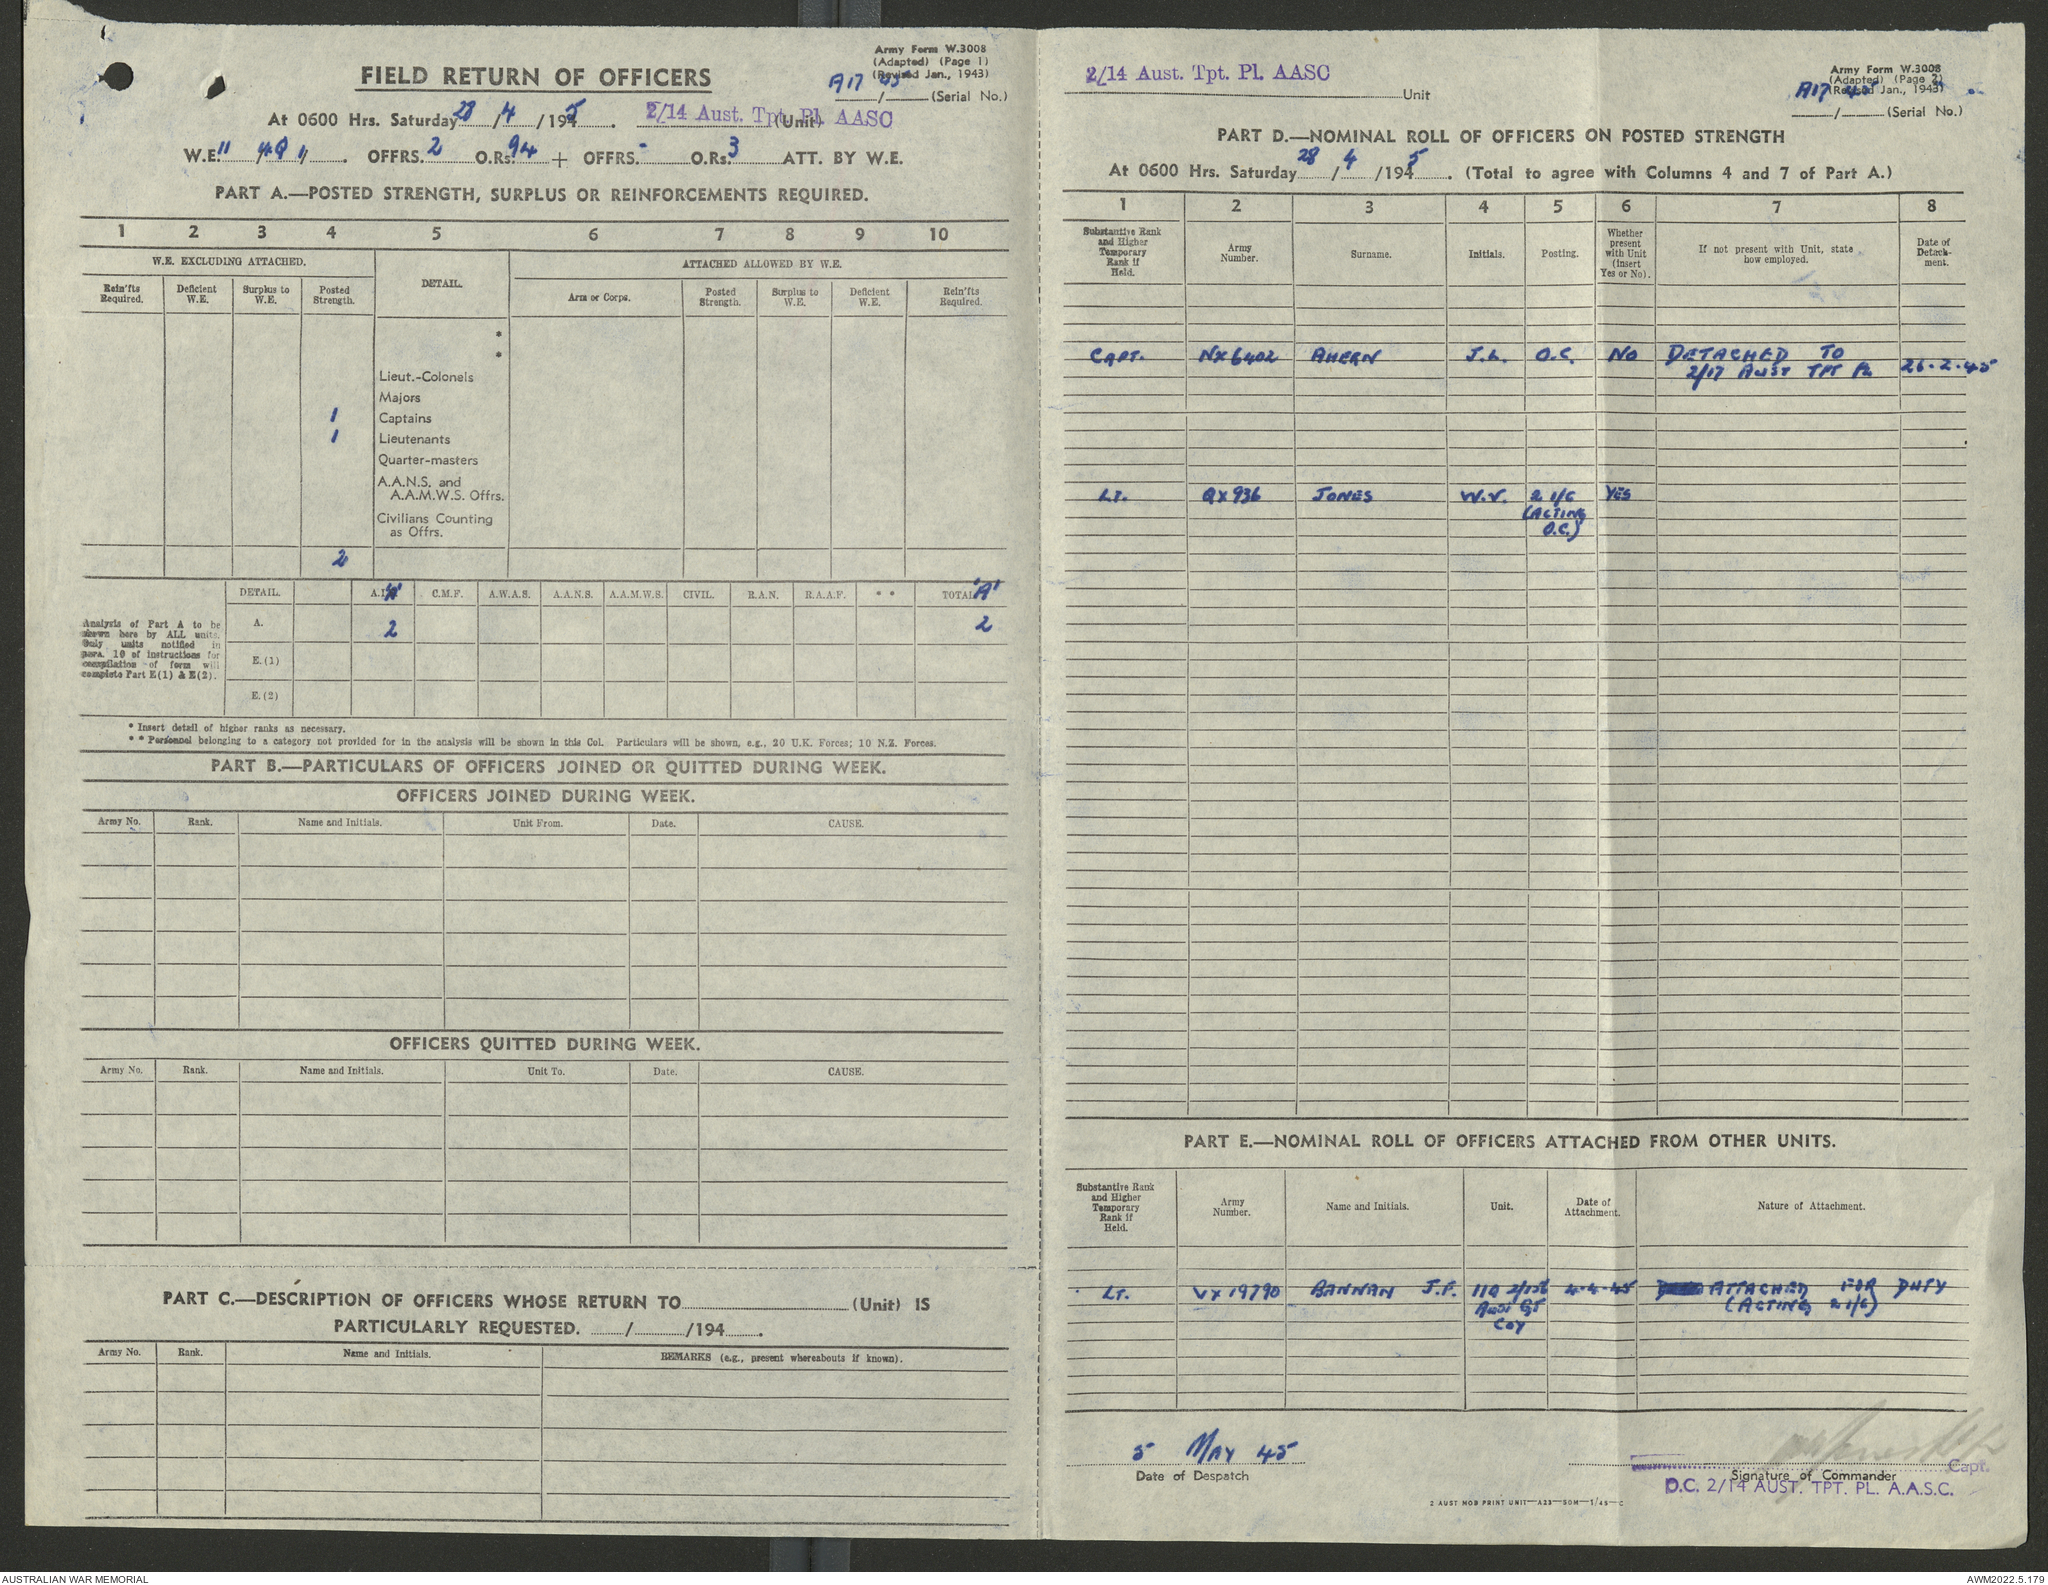 Army Form W.3008
(Adapted) (Page 1)
(Revised Jan., 1943)
FIELD RETURN OF OFFICERS
A17 / 45 (Serial No.)
At 0600 Hrs. Saturday 28 / 4 / 1945. 2/14 Aust. Tpt. Pl. AASC (Unit)
W.E. OFFRS. 2 O.Rs. 94 + OFFRS. - O.Rs. 3 ATT. BY W.E.
PART A.—POSTED STRENGTH, SURPLUS OR REINFORCEMENTS REQUIRED.
1 2 3 4 5 6 7 8 9 10
W.E. EXCLUDING ATTACHED. DETAIL. ATTACHED ALLOWED BY W.E.
Rein'fts Required. Deficient W.E. Surplus to W.E. Posted Strength. Arm or Corps. Posted Strength. Surplus to W.E. Deficient W.E. Rein'fts Required.
*
*
Lieut.-Colonels
Majors
1 Captains
1 Lieutenants
Quarter-masters
A.A.N.S. and
A.A.M.W.S. Offrs.
Civilians Counting
as Offrs.
2
DETAIL. A.I.F. 'A' C.M.F. A.W.A.S. A.A.N.S. A.A.M.W.S. CIVIL. R.A.N. R.A.A.F. * * TOTAL 'A'
Analysis of Part A to be
shown here by ALL units.
Only units notified in
para. 10 of instructions for
compilation of form will
complete Part E(1) & E(2).
A. 2 2
E.(1)
E.(2)
* Insert detail of higher ranks as necessary.
* * Personnel belonging to a category not provided for in the analysis will be shown in this Col. Particulars will be shown, e.g., 20 U.K. Forces; 10 N.Z. Forces.
PART B.—PARTICULARS OF OFFICERS JOINED OR QUITTED DURING WEEK.
OFFICERS JOINED DURING WEEK.
Army No. Rank. Name and Initials. Unit From. Date. CAUSE.
OFFICERS QUITTED DURING WEEK.
Army No. Rank. Name and Initials. Unit To. Date. CAUSE.
PART C.—DESCRIPTION OF OFFICERS WHOSE RETURN TO (Unit) IS
PARTICULARLY REQUESTED. / /194 .
Army No. Rank. Name and Initials. REMARKS (e.g., present whereabouts if known).
2/14 Aust. Tpt. Pl. AASC
Unit
Army Form W.3008
(Adapted) (Page 2)
(Revised Jan., 1943)
A17 / 45 (Serial No.)
PART D.—NOMINAL ROLL OF OFFICERS ON POSTED STRENGTH
At 0600 Hrs. Saturday 28 / 4 /1945. (Total to agree with Columns 4 and 7 of Part A.)
1 2 3 4 5 6 7 8
Substantive Rank and Higher Temporary Rank if Held. Army Number. Surname. Initials. Posting. Whether present with Unit (insert Yes or No). If not present with Unit, state how employed. Date of Detachment.
CAPT. NX6402 AHERN J.L. O.C. NO DETACHED TO
2/17 AUST TPT PL 26.2.45
LT. QX936 JONES W.V. 2 I/C YES
(ACTING
O.C.)
PART E.—NOMINAL ROLL OF OFFICERS ATTACHED FROM OTHER UNITS.
Substantive Rank and Higher Temporary Rank if Held. Army Number. Name and Initials. Unit. Date of Attachment. Nature of Attachment.
LT. VX19790 BANNAN J.F. 4.4.45 ATTACHED FOR DUTY
AUST GT (ACTING 2 I/C)
COY
5 MAY 45
Date of Despatch
Signature of Commander
Capt.
O.C. 2/14 AUST. TPT. PL. A.A.S.C.
2 AUST MOB PRINT UNIT—A23—50M—1/45—C
AUSTRALIAN WAR MEMORIAL
AWM2022.5.179